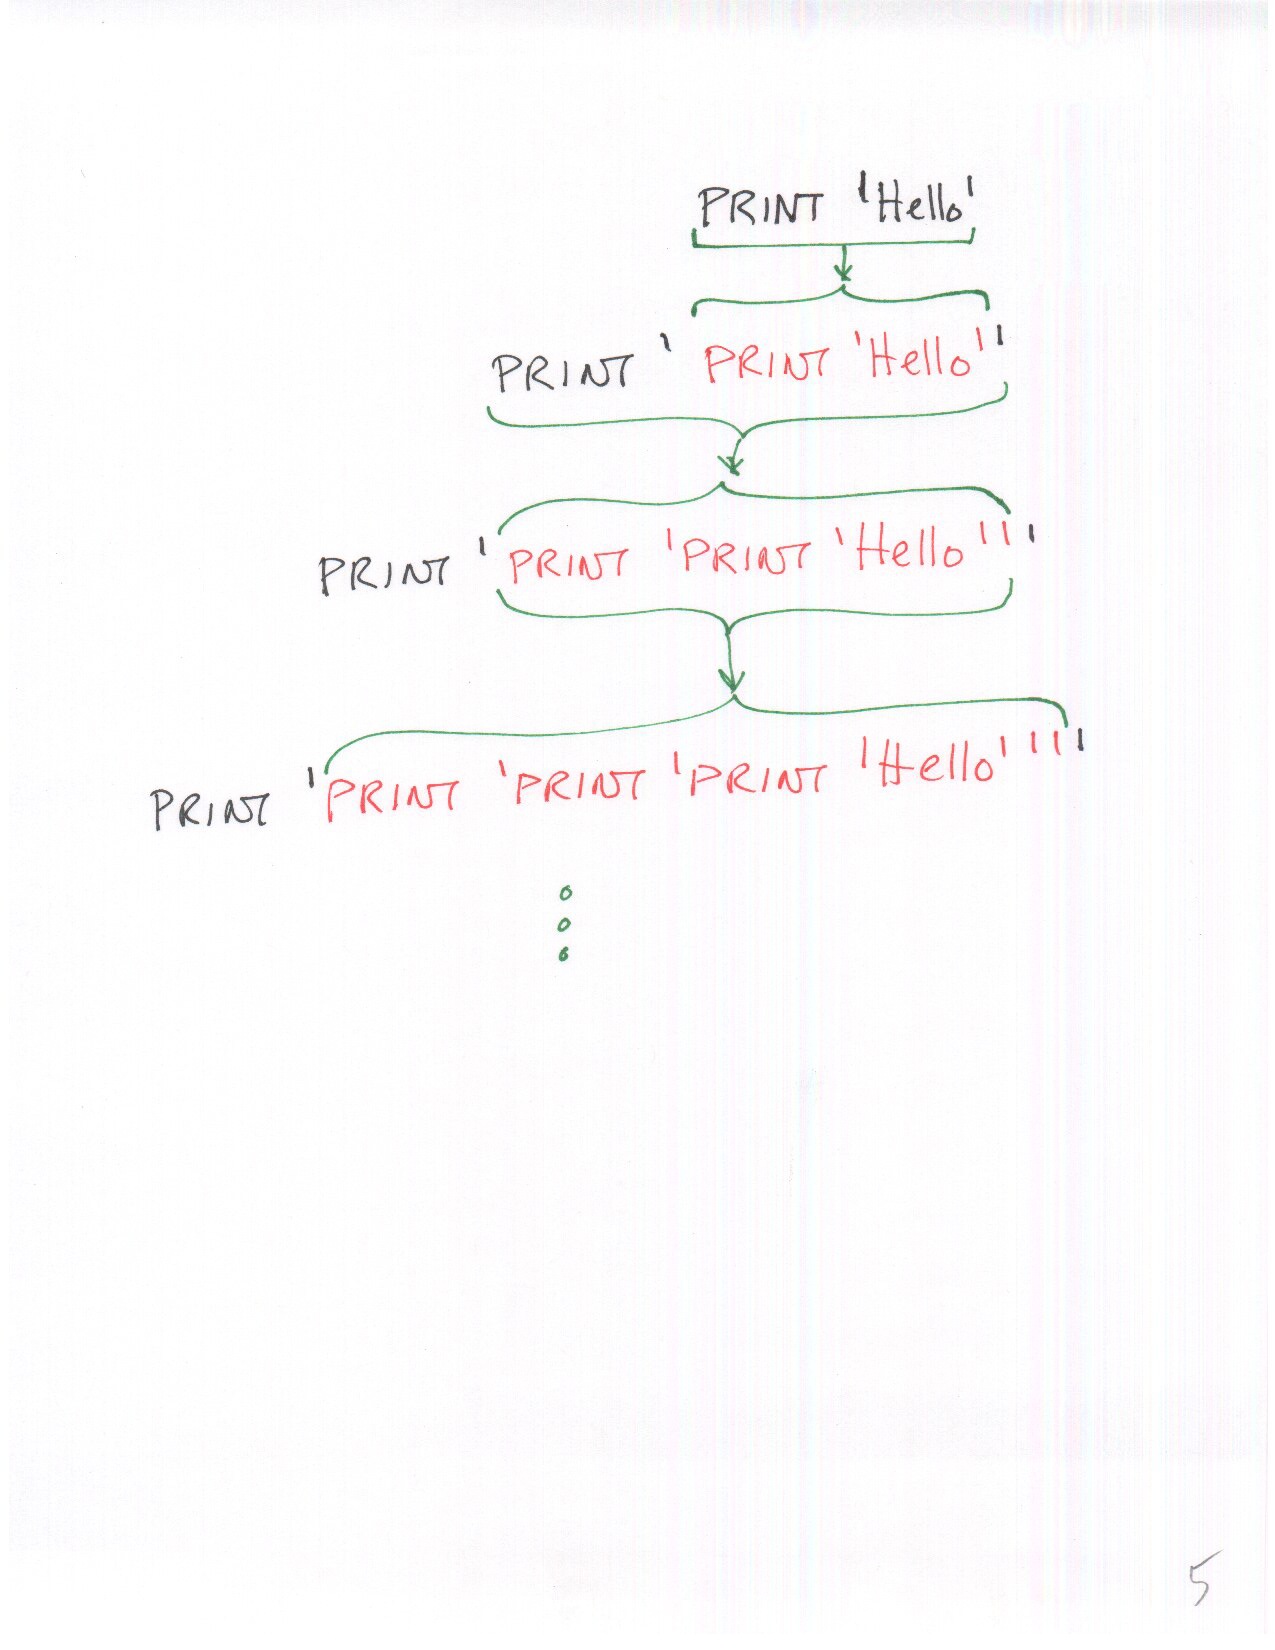 PRINT 'Hello'
PRINT ' PRINT 'Hello''
PRINT 'PRINT 'PRINT 'Hello'''
PRINT 'PRINT 'PRINT 'PRINT 'Hello''''
5